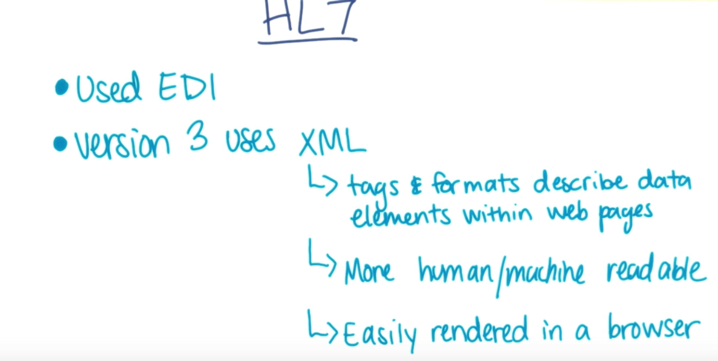 HL7
• Used EDI
• version 3 uses XML
↳ tags & formats describe data
elements within web pages
↳ More human/machine readable
↳ Easily rendered in a browser